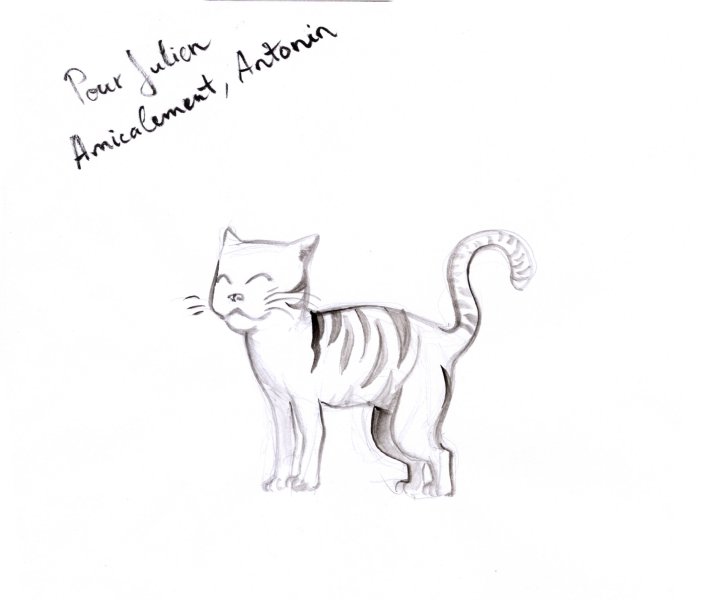 Pour Julien
Amicalement, Antonin